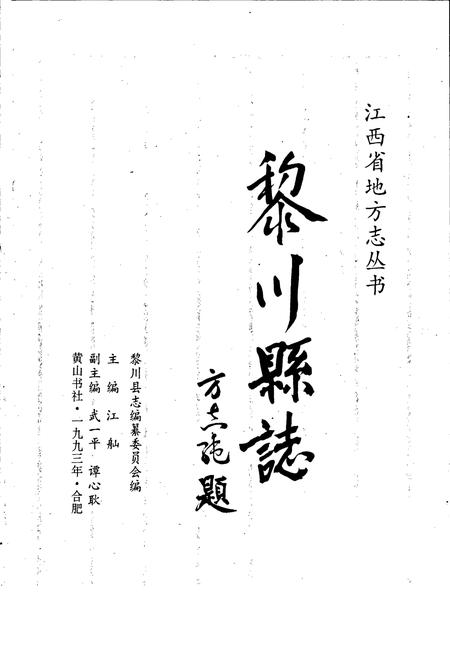 江西省地方志丛书
黎川縣誌
方志纯题
黎川县志编纂委员会编
主编 江舢
副主编 武一平 谭心耿
黄山书社·一九九三年·合肥